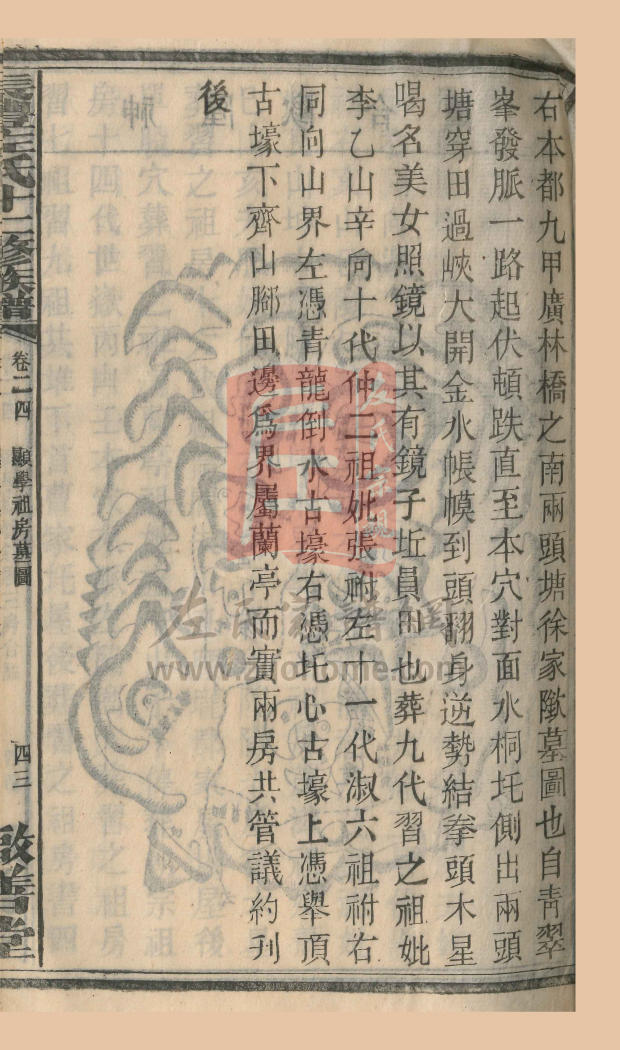 右本都九甲廣林橋之南兩頭塘徐家陂墓圖也自靑翠
峯發脈一路起伏頓跌直至本穴對面水桐圫側出兩頭
塘穿田過峽大開金水帳幙到頭翻身逆勢結拳頭木星
喝名美女照鏡以其有鏡子坵員田也葬九代習之祖妣
李乙山辛向十代仲二祖妣張祔左十一代淑六祖祔右
同向山界左憑青龍倒水古壕右憑圫心古壕上憑舉頂
古壕下齊山腳田邊爲界屬蘭亭而實兩房共管議約刋
後
左氏十二修族譜
卷二四
顯學祖房墓圖
四三
啟善堂
www.zuoshome.com